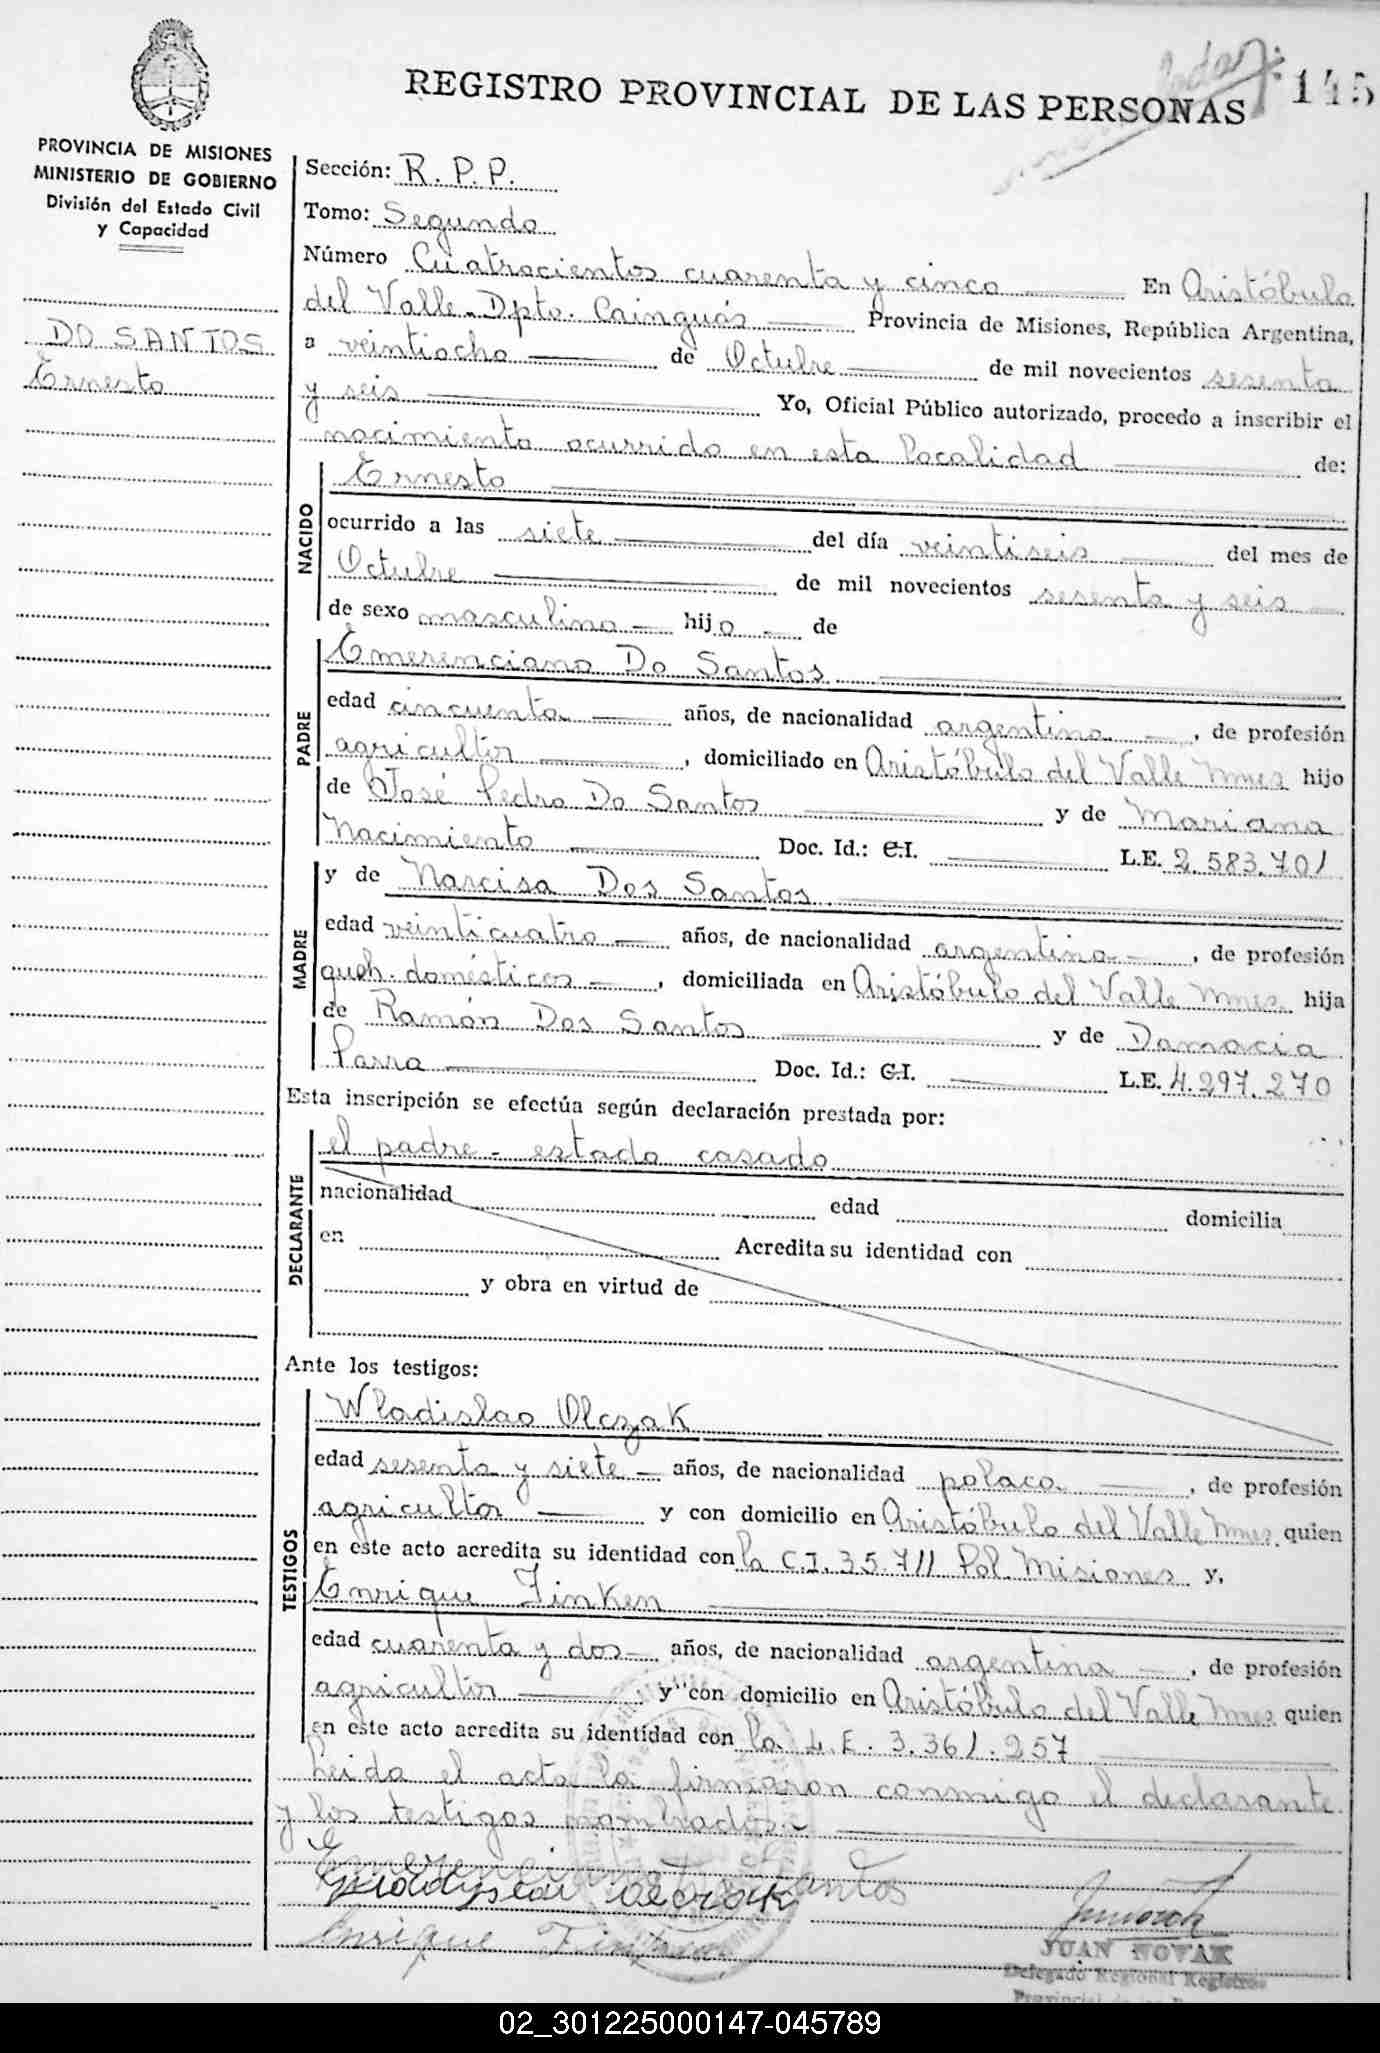 REGISTRO PROVINCIAL DE LAS PERSONAS
145
PROVINCIA DE MISIONES
MINISTERIO DE GOBIERNO
División del Estado Civil
y Capacidad
DO SANTOS
Ernesto
Sección: R. P. P.
Tomo: Segundo
Número Cuatrocientos cuarenta y cinco En Aristóbulo
del Valle. Dpto. Cainguás Provincia de Misiones, República Argentina,
a veintiocho de Octubre de mil novecientos sesenta
y seis Yo, Oficial Público autorizado, procedo a inscribir el
nacimiento ocurrido en esta localidad de:
NACIDO
Ernesto
ocurrido a las siete del día veintiseis del mes de
Octubre de mil novecientos sesenta y seis
de sexo masculino hijo de
PADRE
Emerenciano Do Santos
edad cincuenta años, de nacionalidad argentina, de profesión
agricultor, domiciliado en Aristóbulo del Valle Mnes hijo
de José Pedro Do Santos y de Mariana
Nacimiento Doc. Id.: C.I. L.E. 2.583.701
MADRE
y de Narcisa Dos Santos.
edad veinticuatro años, de nacionalidad argentina, de profesión
queh. domésticos, domiciliada en Aristóbulo del Valle Mnes. hija
de Ramón Dos Santos y de Damacia
Parra Doc. Id.: C.I. L.E. 4.297.270
Esta inscripción se efectúa según declaración prestada por:
DECLARANTE
el padre - estado casado
nacionalidad edad domicilia
en Acredita su identidad con
y obra en virtud de
Ante los testigos:
TESTIGOS
Wladislao Olczak
edad sesenta y siete años, de nacionalidad polaca, de profesión
agricultor y con domicilio en Aristóbulo del Valle Mnes. quien
en este acto acredita su identidad con la C.I. 35.711 Pol. Misiones y,
Enrique Finken
edad cuarenta y dos años, de nacionalidad argentina, de profesión
agricultor y con domicilio en Aristóbulo del Valle Mnes quien
en este acto acredita su identidad con la L.E. 3.361.257
Leida el acta la firmaron conmigo el declarante
y los testigos nombrados.-
Enrique
JUAN NOVAK
Delegado Regional Registro
02_301225000147-045789